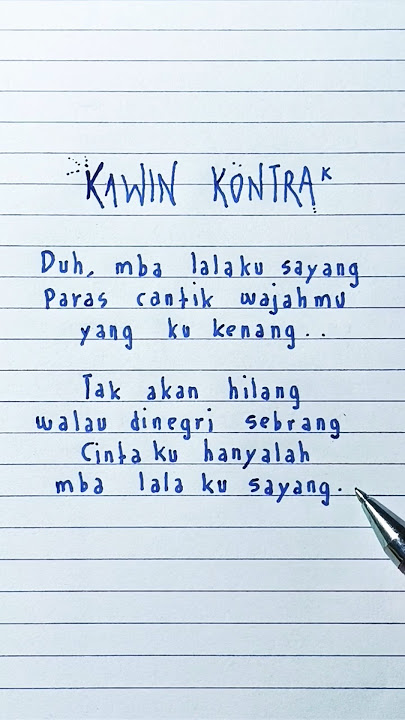 KAWIN KONTRAK
Duh, mba lalaku sayang
Paras cantik wajahmu
yang ku kenang..
Tak akan hilang
walau dinegri sebrang
Cinta ku hanyalah
mba lala ku sayang.